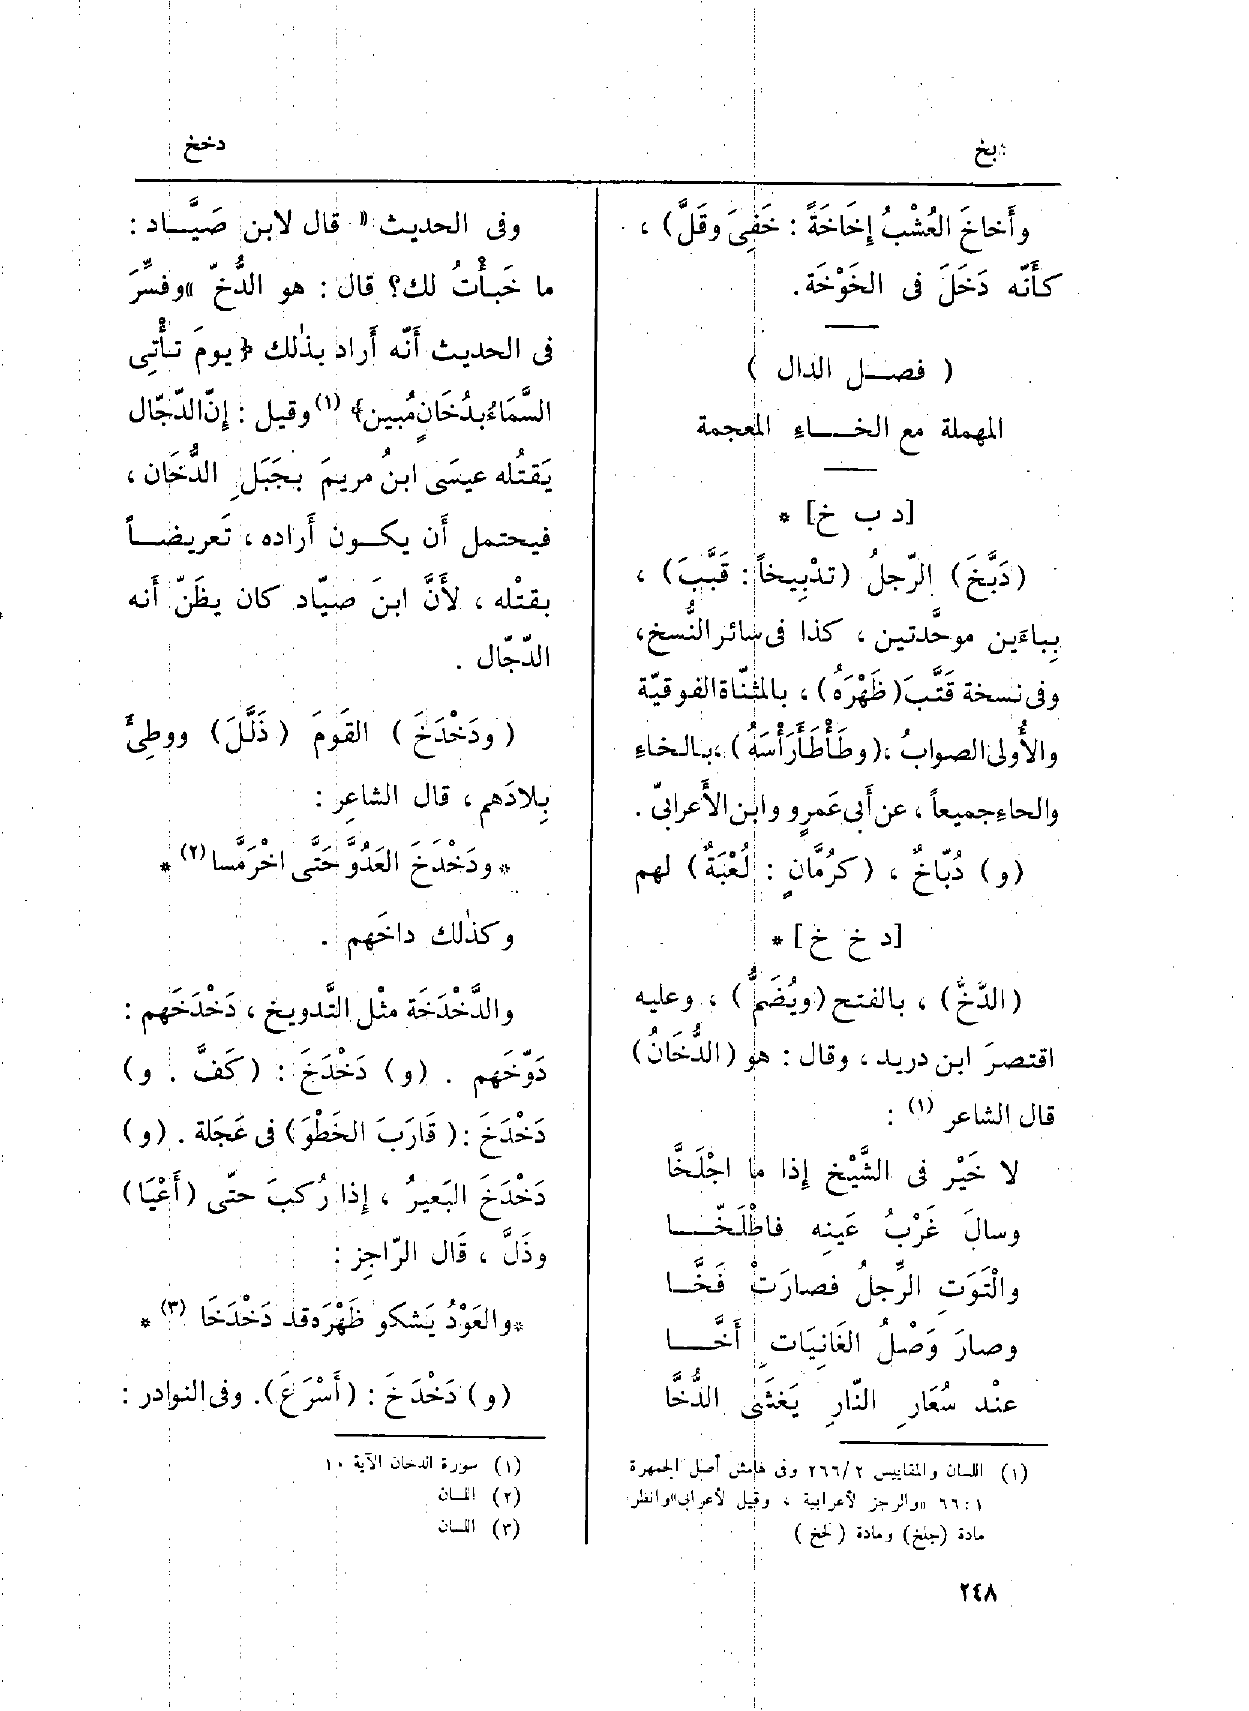 دبخ
دخخ
وأَخاخَ العُشْبُ إِخَاخَةً : خَفِىَ وقَلَّ) ،
كأَنّه دَخَلَ فى الخَوْخَة.
( فصــل الدال )
المهملة مع الخــاء المعجمة
[د ب خ] *
(دَبَّخَ) الرّجلُ (تدْبِيخاً: قَبَّبَ) ،
بِباءَين موحَّدتين ، كذا فى سائر النُّسخ،
وفى نسخة قَتَّبَ (ظَهْرَهُ) ، بالمثنّاة الفوقيّة
والأُولى الصوابُ ، (وطَأْطَأَ رَأْسَهُ) ، بالخاء
والحاء جميعاً ، عن أَبى عَمرٍو وابن الأَعرابىّ .
(و) دُبّاخٌ ، (كرُمَّانٍ : لُعْبَةٌ) لهم
[د خ خ] *
(الدَّخّ) ، بالفتح (ويُضَمُّ) ، وعليه
اقتصرَ ابن دريد ، وقال : هو (الدُّخَانُ)
قال الشاعر (١) :
لا خَيْر فى الشَّيْخ إِذا ما اجْلَخَّا
وسالَ غَرْبُ عَينِه فاطْلَخّــا
والْتَوَتِ الرِّجلُ فصارَتْ فَخَّــا
وصارَ وَصْلُ الغَانِيَاتِ أَخَّــا
عنْد سُعَارِ النّارِ يَغشَى الدُّخَّا
(١) اللسان والمقاييس ٢/٢٦٦ وفى هامش أصل الجمهرة
١ : ٦٦ «والرجز لأعرابية ، وقيل لأعرابى» وانظر
مادة (جلخ) ومادة (لخخ)
وفى الحديث « قال لابن صَيَّــاد :
ما خَبأْتُ لك؟ قال : هو الدُّخّ » وفسِّرَ
فى الحديث أَنّه أَراد بذٰلك ﴿يومَ تَأْتِى
السَّمَاءُ بدُخَانٍ مُبِين﴾ (١) وقيل : إِنّ الدّجّال
يَقتُله عيسَى ابنُ مريمَ بجَبَلِ الدُّخَان ،
فيحتمل أَن يكون أَراده ، تَعريضــاً
بقتْله ، لأَنَّ ابنَ صيّاد كان يظَنّ أَنه
الدّجّال .
(ودَخْدَخَ) القَومَ (ذَلَّلَ) ووطِئَ
بِلادَهم ، قال الشاعِر :
*ودَخْدَخَ العَدُوَّ حَتَّى اخْرَمَّسا (٢) *
وكذٰلك داخَهم .
والدَّخْدَخَة مثْل التَّدويخ ، دَخْدَخَهم :
دَوّخَهم . (و) دَخْدَخَ : (كَفَّ . و)
دَخْدَخَ : (قَارَبَ الخَطْوَ) فى عَجَلة . (و)
دَخْدَخَ البَعيرُ ، إِذا رُكبَ حتّى (أَعْيَا)
وذَلَّ ، قَال الرّاجِز :
*والعَوْدُ يَشكو ظَهْرَه قد دَخْدَخَا (٣) *
(و) دَخْدَخَ : (أَسْرَعَ). وفى النوادر :
(١) سورة الدخان الآية ١٠
(٢) اللسان
(٣) اللسان
٢٤٨